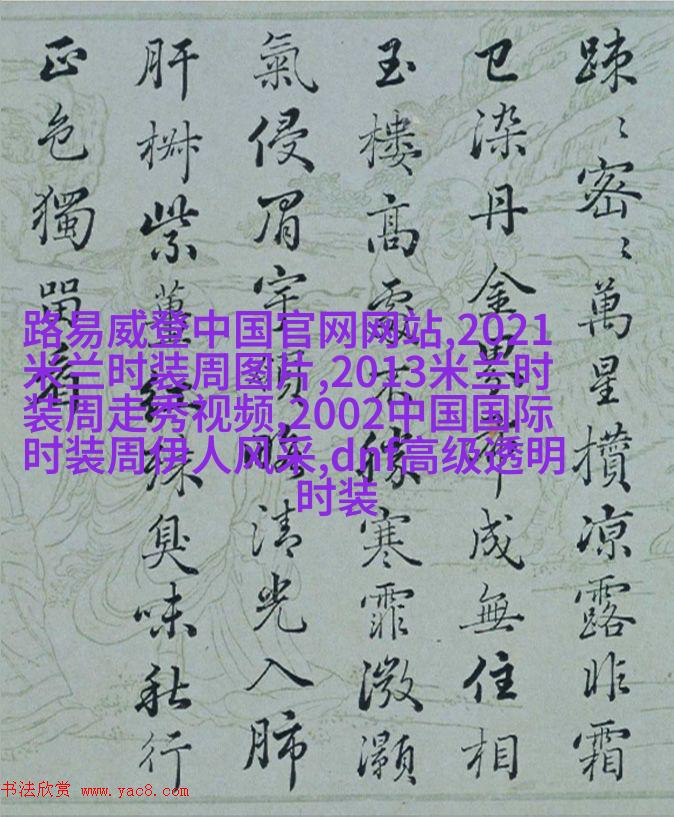 疎〻密〻萬星攢凉露昨霜
已染丹金界成無住相
玉樓高處不勝寒霏微灝
氣侵眉宇清光入肺
肝紫薑殊臭味秋行
正色獨留
路易威登中国官网网站,2021
米兰时装周图片,2013米兰时
装周走秀视频,2002中国国际
时装周伊人风采,dnf高级透明
时装
书法欣赏 www.yac8.com